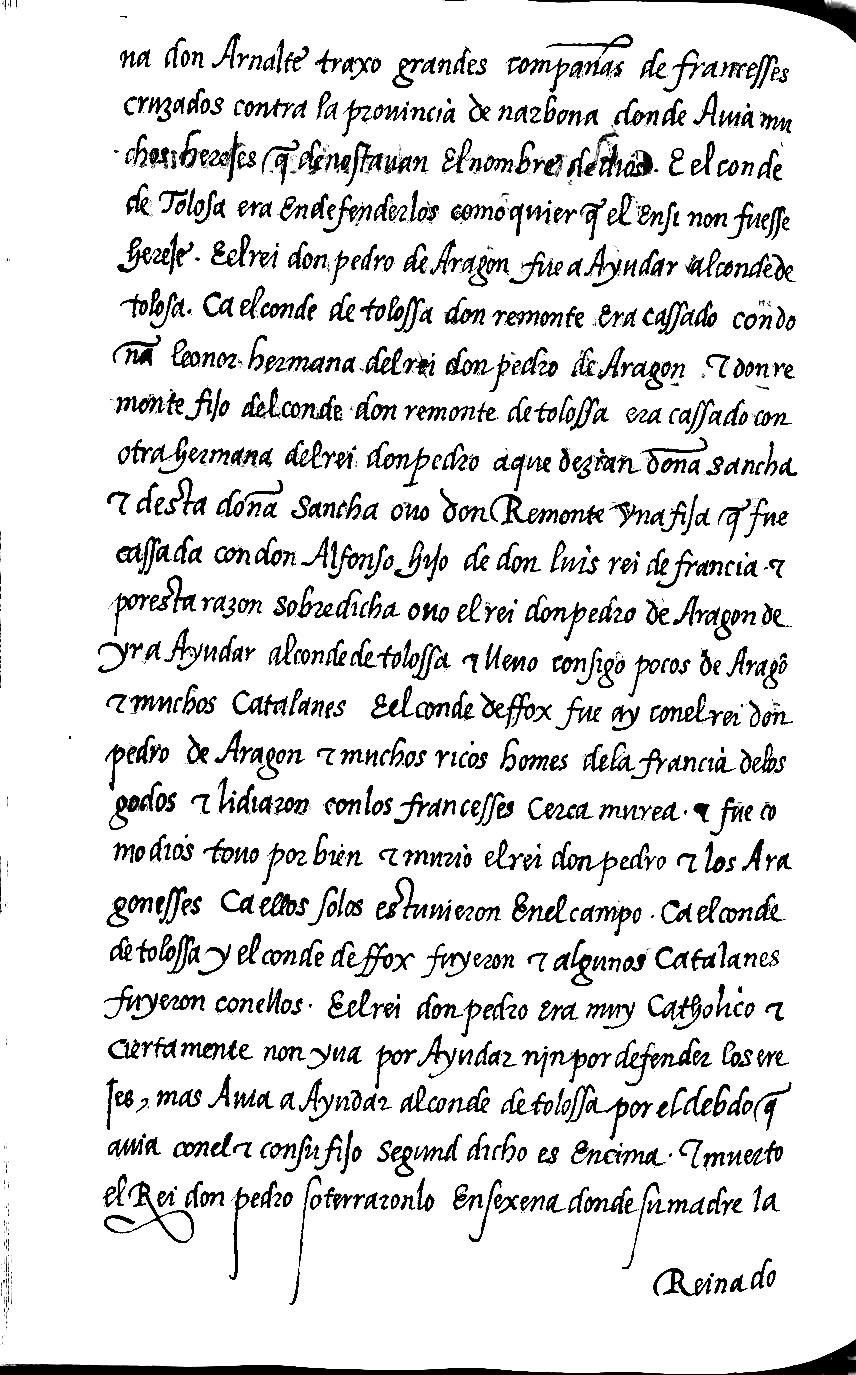 na don Arnalte traxo grandes compañas de francesses
cruzados contra la provincia de narbona donde Auia mu
chos herejes q̃ denostauan El nombre de dios. E el conde
de Tolosa era En defenderlos como quier q̃ el Ensi non fuesse
hereje. E el rei don pedro de Aragon fue a Ayudar al conde de
tolosa. Ca el conde de tolossa don remonte era cassado con do
ña leonor hermana del rei don pedro de Aragon ⁊ don re
monte fijo del conde don remonte de tolossa era cassado con
otra hermana del rei don pedro a que dezian doña sancha
⁊ desta doña Sancha ouo don Remonte Vna fija q̃ fue
cassada con don Alfonso hijo de don luis rei de francia ⁊
por esta razon sobredicha ouo el rei don pedro de Aragon de
yr a Ayudar al conde de tolossa ⁊ lleuo consigo pocos de Aragõ
⁊ muchos Catalanes E el conde de ffox fue ay con el rei don
pedro de Aragon ⁊ muchos ricos homes de la francia de los
godos ⁊ lidiaron con los francesses Cerca murea. ⁊ fue co
mo dios touo por bien ⁊ murio el rei don pedro ⁊ los Ara
gonesses Ca ellos solos estuuieron En el campo. Ca el conde
de tolossa y el conde de ffox fuyeron ⁊ algunos Catalanes
fuyeron con ellos. E el rei don pedro era muy Catholico ⁊
ciertamente non yua por Ayudar nin por defender los ere
jes, mas Auia a Ayudar al conde de tolossa por el debdo q̃
auia con el ⁊ con su fijo Segund dicho es Encima. ⁊ muerto
el Rei don pedro soterraronlo En sexena donde su madre la
Reinado